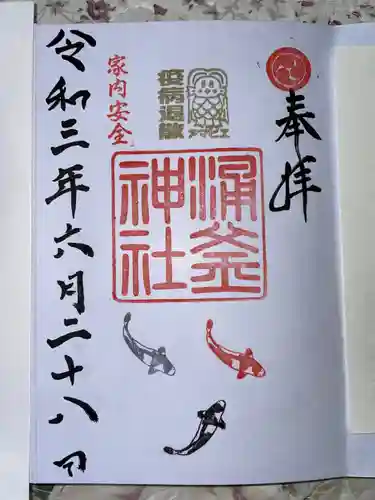 奉拝
疫病退散
アマビエ
涌釜
神社
家内安全
令和三年六月二十八日